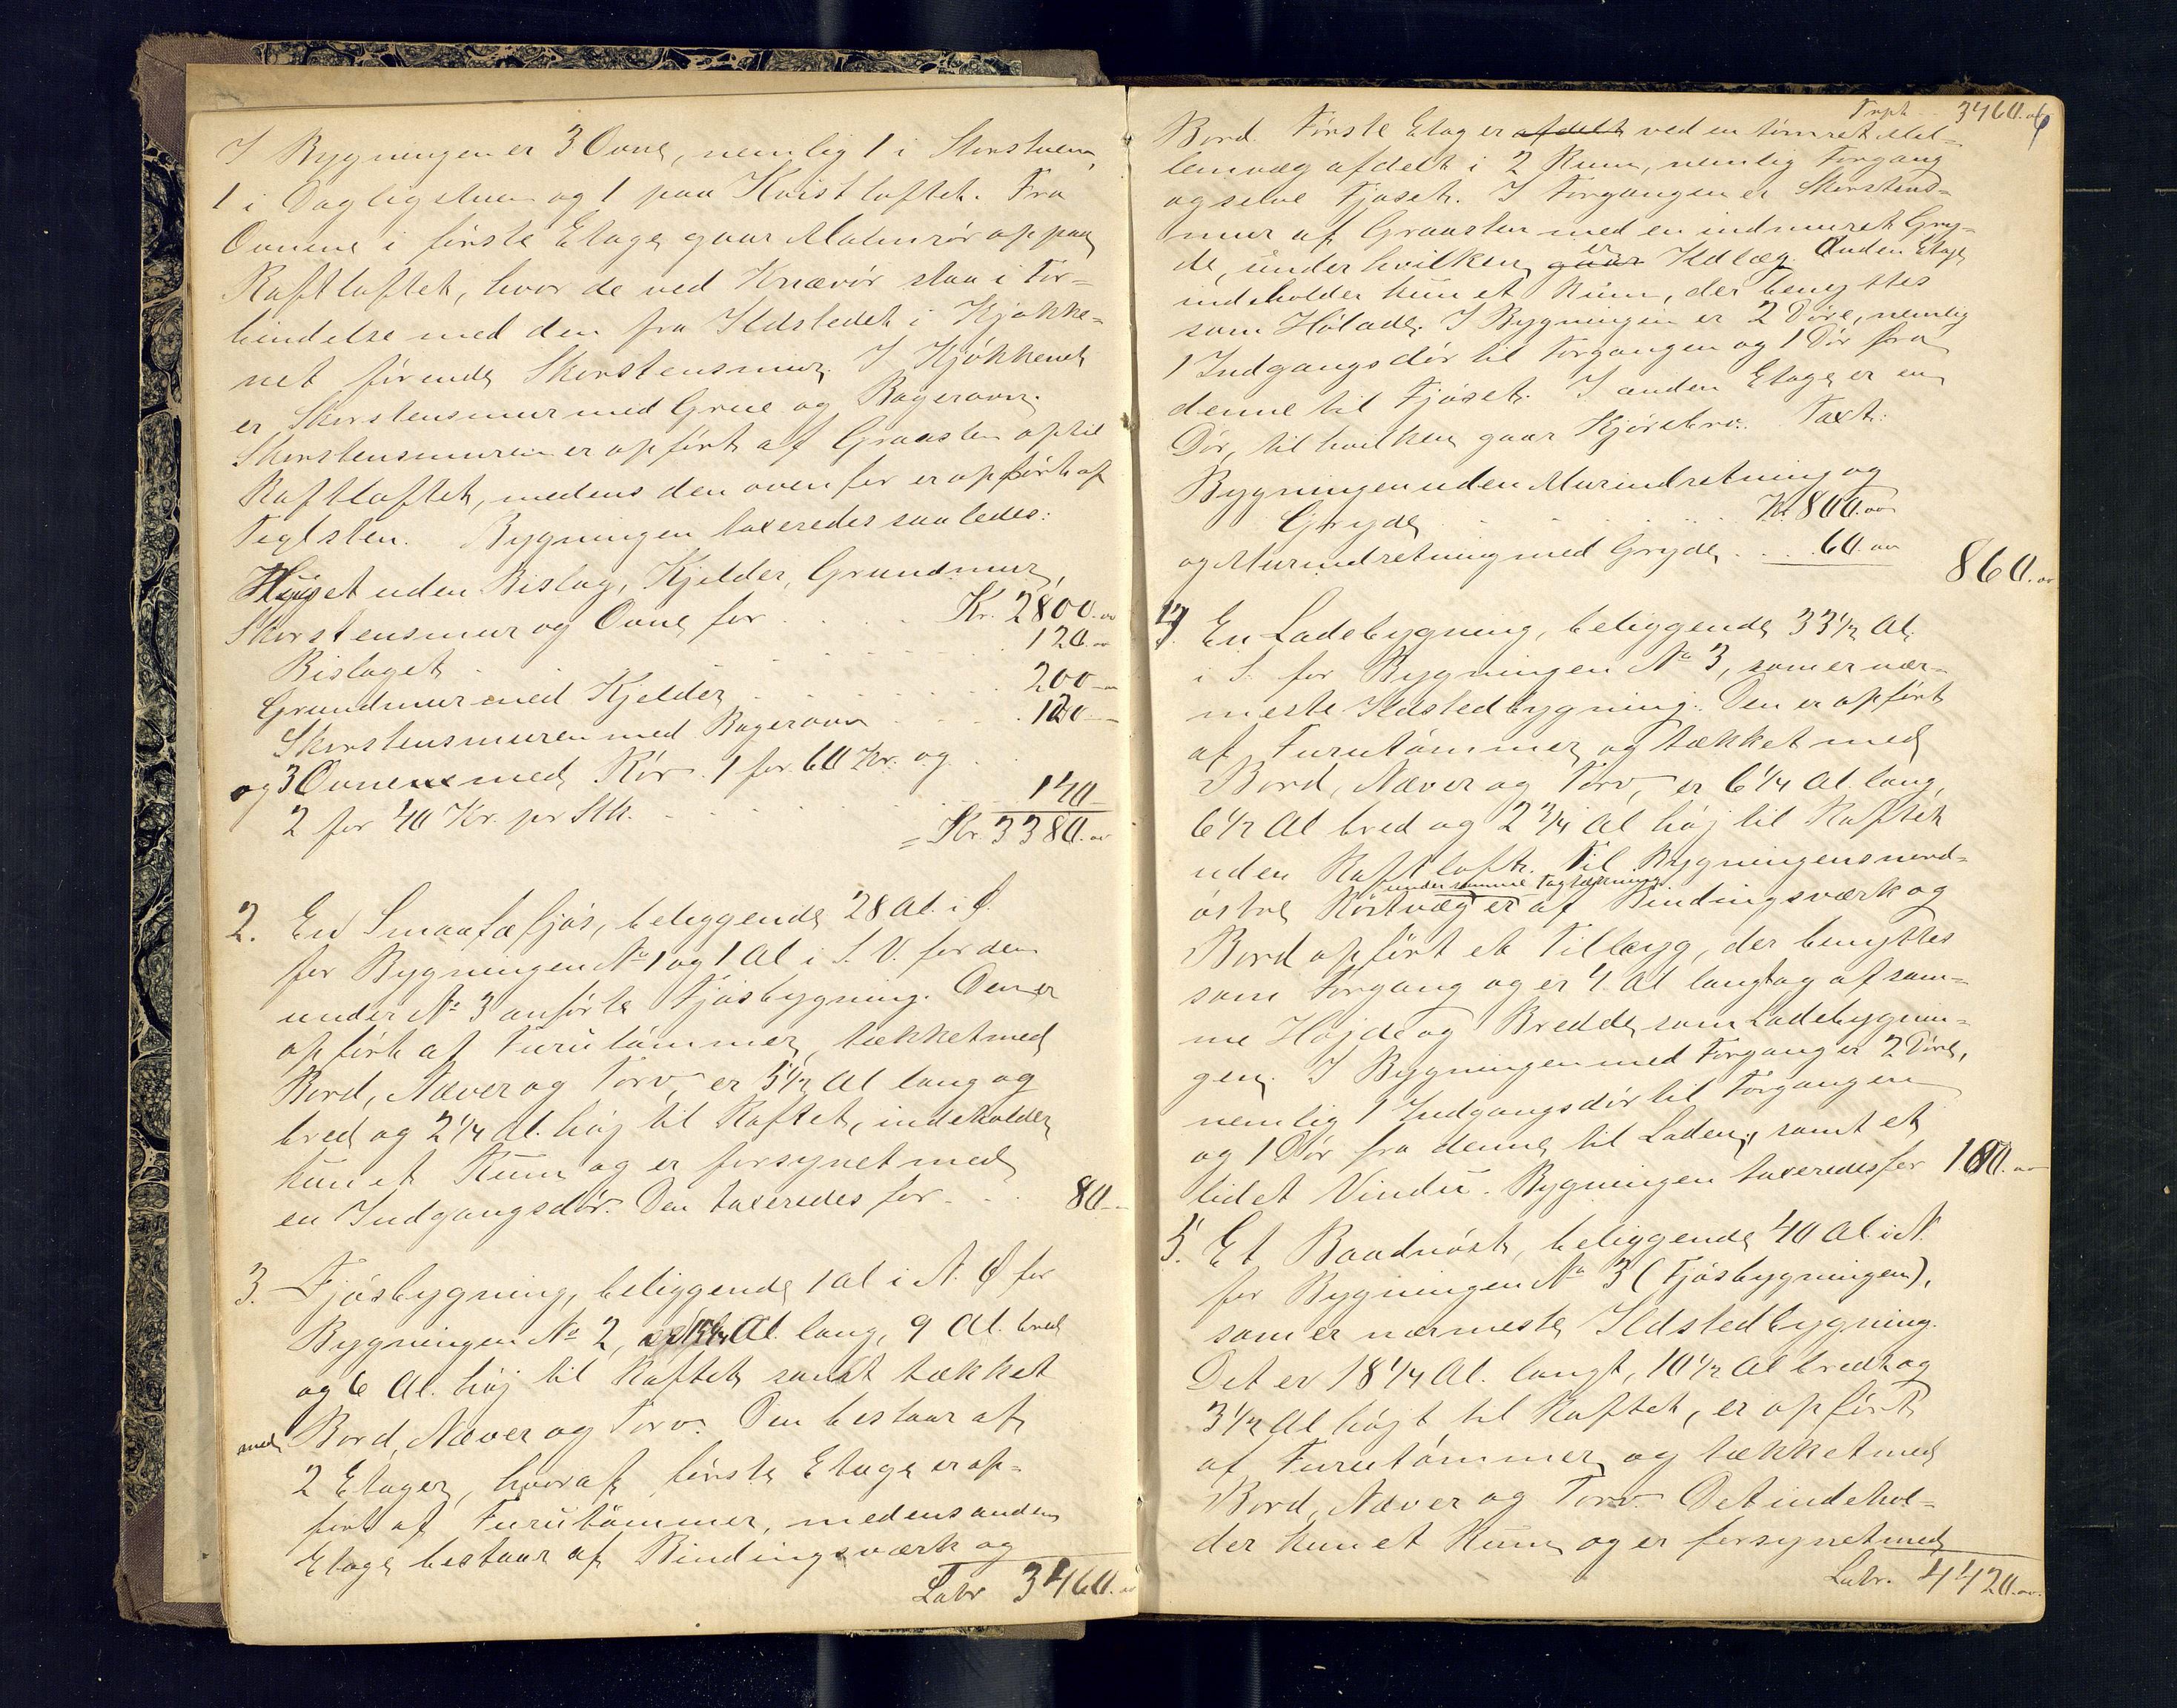 I Bygningen er 3 Ovne, nemlig 1 i Storstuen,
1 i Dagligstuen og 1 paa Kvistloftet. Fra
Ovnene i første Etage gaar Malmrør op paa
Raftloftet, hvor de ved Knærør staa i For-
bindelse med den fra Ildstedet i Kjøkke-
net førende Skorstensmur. I Kjøkkenet
er Skorstensmur med Grue og Bagerovn.
Skorstensmuren er opført af Graasten op til
Raftloftet, medens den ovenfor er opført af
Teglsten. Bygningen taxeredes saaledes:
Huset uden Bislag, Kjelder, Grundmur,
Skorstensmur og Ovne for . . . . Kr. 2800.00
Bislaget . . . . 120.00
Grundmur med Kjelder . . . . 200 —
Skorstensmuren med Bagerovn . . . . 120 —
og 3 Ovne med Rør. 1 for 60 Kr. og
2 for 40 Kr. pr Stk. . . . . 140 —
= Kr. 3380.00
2. En Smaafæfjøs, beliggende 28 Al. i Ø.
for Bygningen No 1 og 1 Al i S. V. for den
under No 3 anførte Fjøsbygning. Den er
opført af Furutømmer, tækket med
Bord, Næver og Torv, er 5 1/2 Al lang og
bred og 2 1/4 Al. høj til Raftet, indeholder
kun et Rum og er forsynet med
en Indgangsdør. Den taxeredes for . . . 80 —
3. Fjøsbygning, beliggende 1 Al i N. Ø for
Bygningen No 2, er Al. lang, 9 Al. bred
og 6 Al. høj til Raftet samt tækket
med Bord, Næver og Torv. Den bestaar af
2 Etager, hvoraf første Etage er op-
ført af Furutømmer, medens anden
Etage bestaar af Bindingsværk og
Latr 3460.00
Trpt 3460.00
6
Bord. Første Etag er afdelt ved en tømret Mel-
lemvæg afdelt i 2 Rum, nemlig Forgang
og selve Fjøset. I Forgangen er Skorstens-
mur af Graasten med en indmuret Gry-
de, under hvilken gaar er Ildlæg. Anden Etage
indeholder kun et Rum, der benyttes
som Hølade. I Bygningen er 2 Døre, nemlig
1 Indgangsdør til Forgangen og 1 Dør fra
denne til Fjøset. I anden Etage er en
Dør, til hvilken gaar Kjørebro. Taxt:
Bygningen uden Murindretning og
Gryde . . . . Kr 800.00
og Murindretning med Gryde . . . 60.00 860.00
4. En Ladebygning, beliggende 33 1/2 Al.
i S. for Bygningen No 3, som er nær-
meste Ildstedbygning. Den er opført
af Furutømmer og tækket med
Bord, Næver og Torv, er 6 1/4 Al. lang,
6 1/2 Al bred og 2 3/4 Al høj til Raftet
uden Raftloft. Til Bygningens nord-
østre Røstvæg er under samme Tagtækning af Bindingsværk og
Bord opført et Tilbyg, der benyttes
som Forgang og er 4 Al langt og af sam-
me Højde og Bredde som Ladebygnin-
gen. I Bygningen med Forgang er 2 Døre,
nemlig 1 Indgangsdør til Forgangen
og 1 Dør fra denne til Laden, samt et
lidet Vindu. Bygningen taxeredes for 100.00
5. Et Baadnøst, beliggende 40 Al. i N.
for Bygningen No 3 (Fjøsbygningen),
som er nærmeste Ildstedbygning.
Det er 18 1/4 Al. langt, 10 1/2 Al bredt og
3 1/2 Al højt til Raftet, er opført
af Furutømmer og tækket med
Bord, Næver og Torv. Det indehol-
der kun et Rum og er forsynet med
Latr. 4420.00